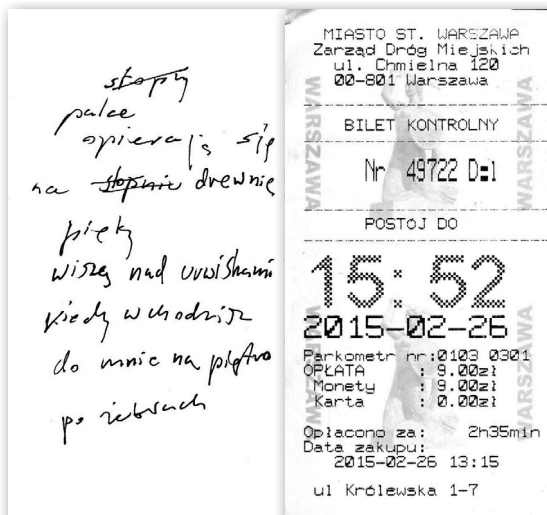 stopy
palce
opierają się
na stopnie drewnie
pięty
wiszą nad urwiskami
kiedy wchodzisz
do mnie na piętro
po żebrach
MIASTO ST. WARSZAWA
Zarząd Dróg Miejskich
ul. Chmielna 120
00-801 Warszawa
BILET KONTROLNY
Nr 49722 D:1
POSTÓJ DO
15:52
2015-02-26
Parkometr nr:0103 0301
OPŁATA : 9.00zł
Monety : 9.00zł
Karta : 0.00zł
Opłacono za: 2h35min
Data zakupu:
2015-02-26 13:15
ul Królewska 1-7
WARSZAWA
WARSZAWA
WARSZAWA
WARSZAWA